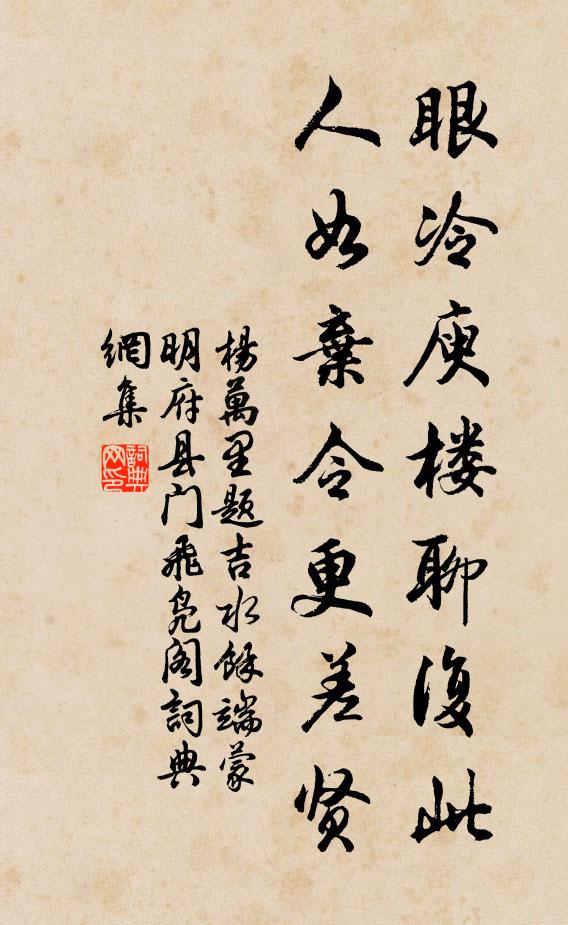 眼冷庾楼聊复此
人如棄令更差贤
楊萬里题吉水餘端蒙
明府县门飛凫阁詞典
網集
詞典
网印